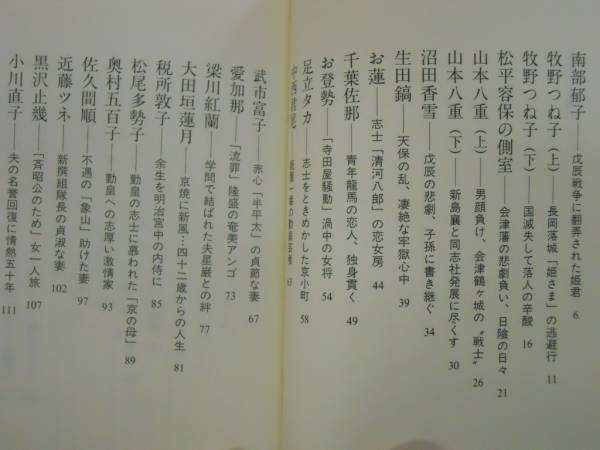 南部郁子――戊辰戦争に翻弄された姫君 6
牧野つね子（上）――長岡落城「姫さま」の逃避行 11
牧野つね子（下）――国滅失して落人の辛酸 16
松平容保の側室――会津藩の悲劇負い、日陰の日々 21
山本八重（上）――男顔負け、会津鶴ヶ城の〝戦士〟 26
山本八重（下）――新島襄と同志社発展に尽くす 30
沼田香雪――戊辰の悲劇、子孫に書き継ぐ 34
生田鎬――天保の乱、凄絶な牢獄心中 39
お蓮――志士「清河八郎」の恋女房 44
千葉佐那――青年龍馬の恋人、独身貫く 49
お登勢――「寺田屋騒動」渦中の女将 54
足立タカ――志士をときめかした京小町 58
中西君尾――
武市富子――赤心「半平太」の貞節な妻 67
愛加那――「流罪」隆盛の奄美アンゴ 73
梁川紅蘭――学問で結ばれた夫星巌との絆 77
大田垣蓮月――京焼に新風…四十二歳からの人生 81
税所敦子――余生を明治宮中の内侍に 85
松尾多勢子――勤皇の志士に慕われた「京の母」 89
奥村五百子――勤皇への志厚い激情家 93
佐久間順――不遇の「象山」助けた妻 97
近藤ツネ――新撰組隊長の貞淑な妻 102
黒沢止幾――「斉昭公のため」女一人旅 107
小川直子――夫の名誉回復に情熱五十年 111